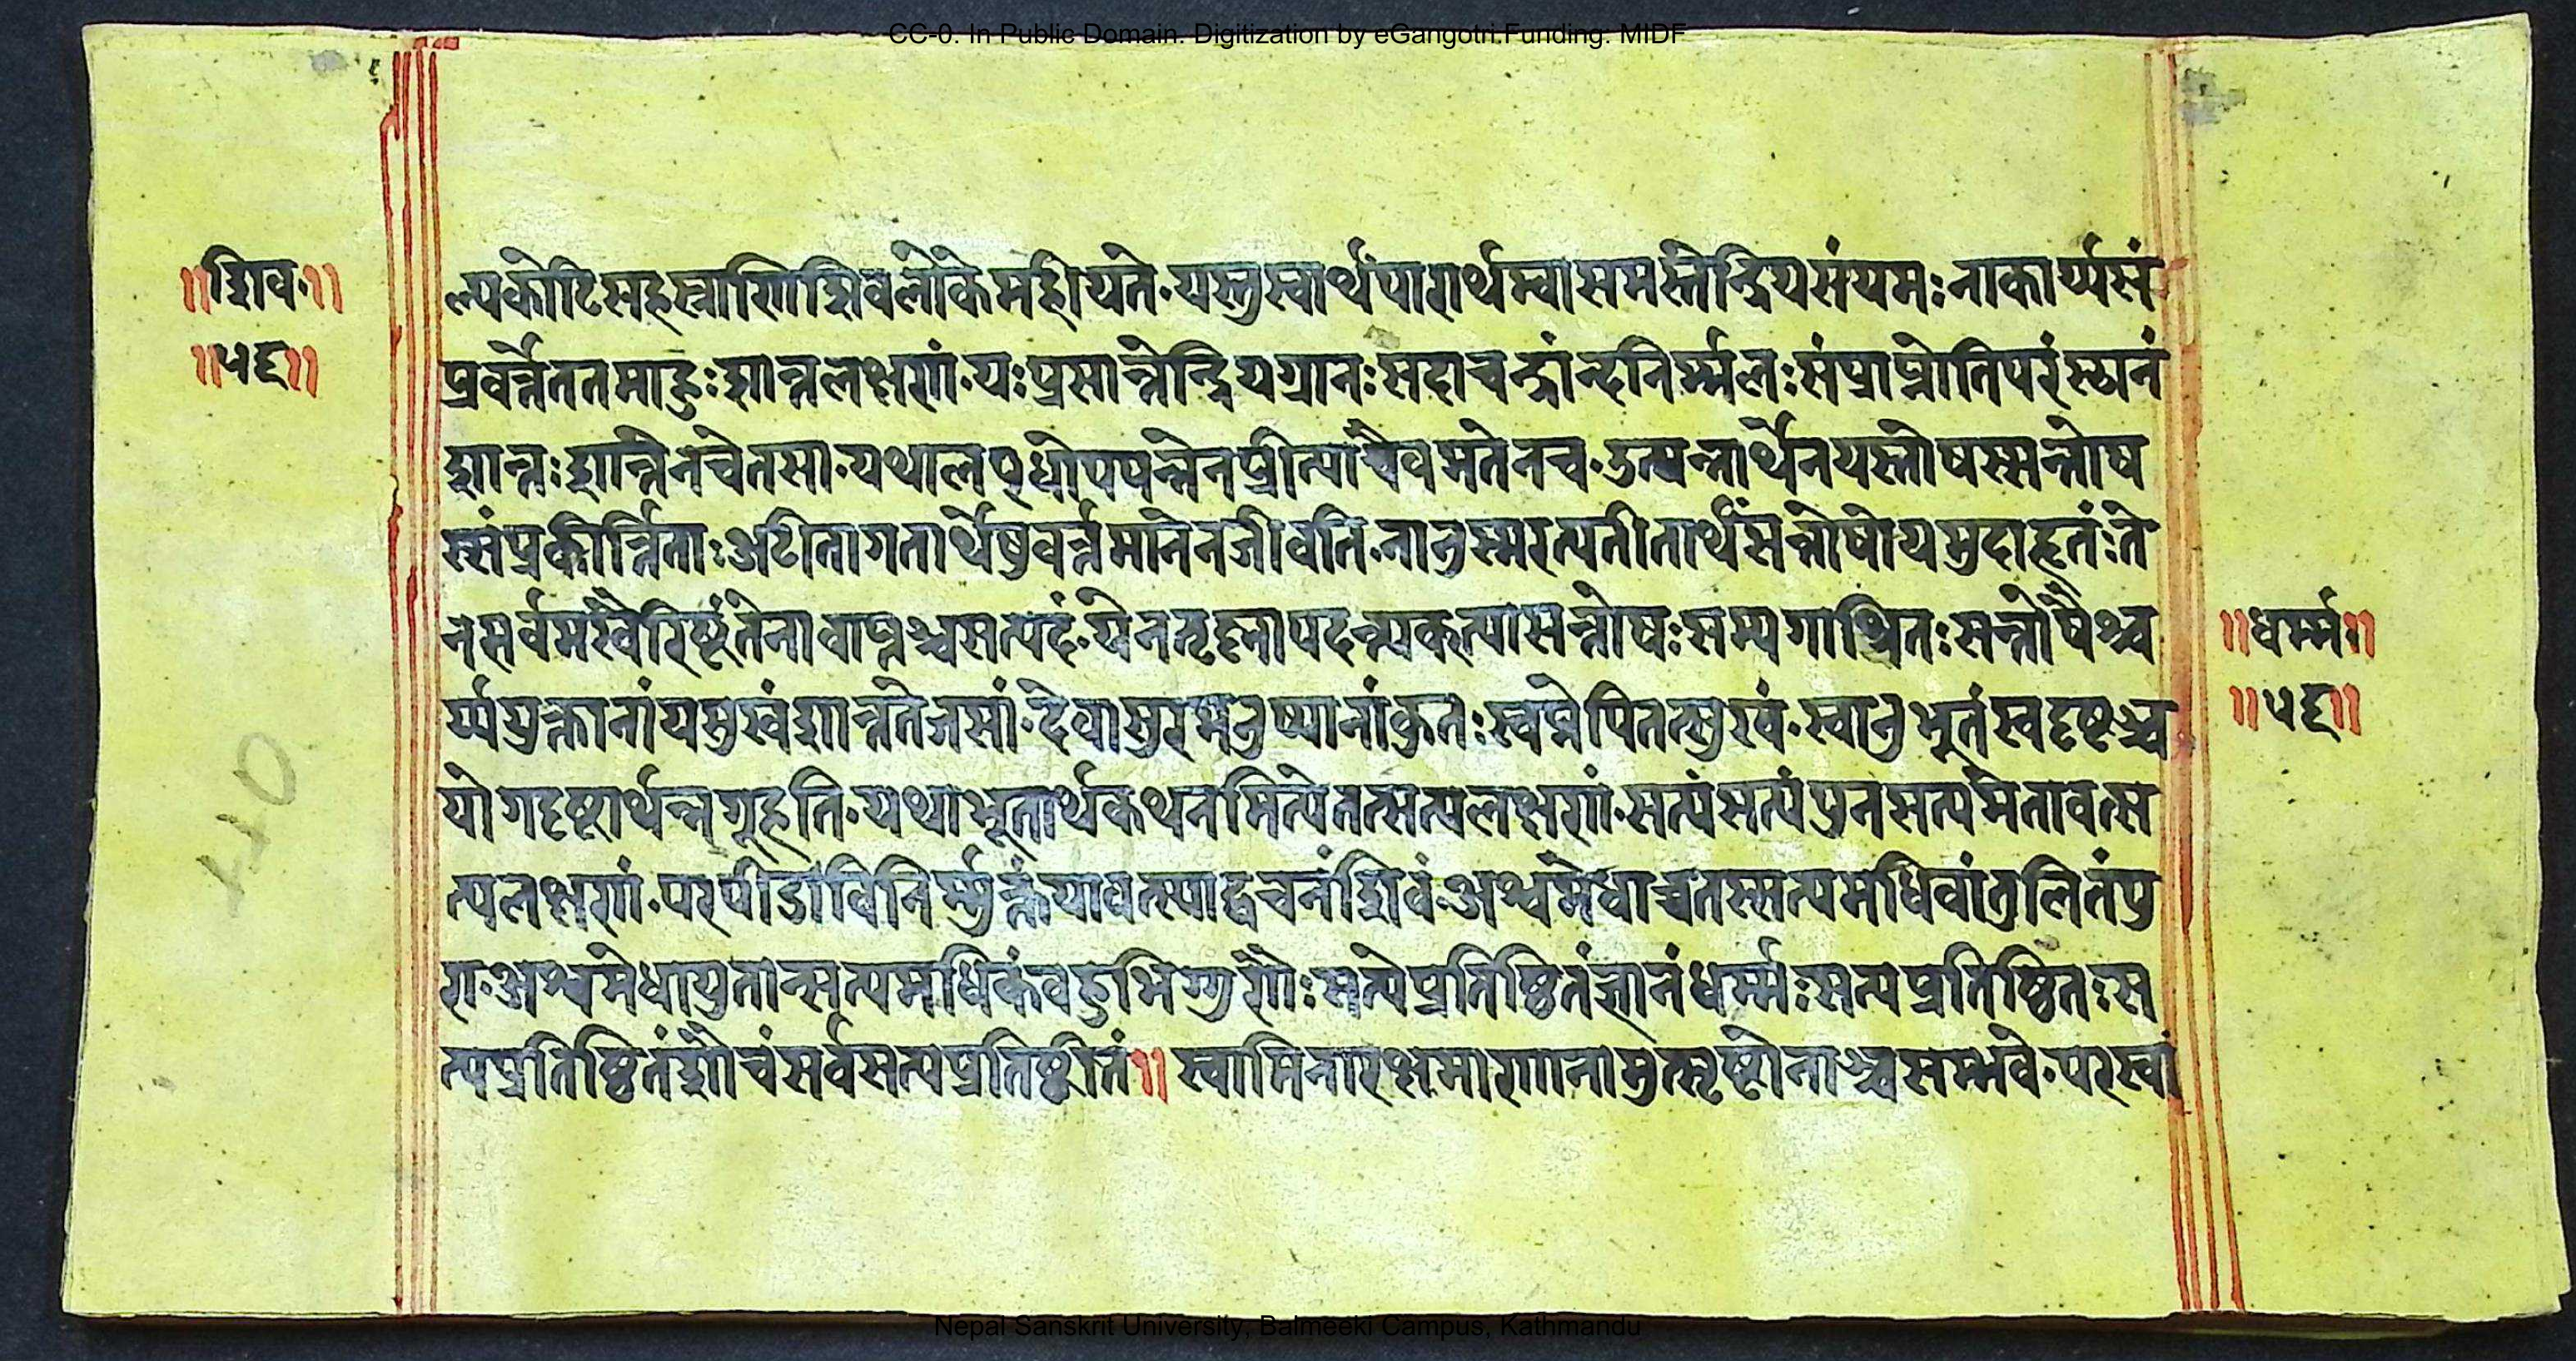 CC-0. In Public Domain. Digitization by eGangotri.Funding. MIDF
॥शिव॰॥
॥५६॥
ल्पकोटिसहस्राणिशिवलोकेमहीयते॰यस्तुस्वार्थंपारार्थम्वासमस्तेन्द्रियसंयमः नाकार्य्यसं
प्रवर्त्तेततमाहुःशान्तलक्षणं॰यःप्रसान्तेन्द्रियग्रानःसदाचन्द्रांन्दनिर्म्मलःसंप्राप्नोतिपरंस्थानं
शान्तःशान्तेनचेतसा॰यथालब्धोपपन्नेनप्रीत्याचैवमतेनच॰उत्पन्नार्थेनयस्तोषस्सन्तोष
स्संप्रकीर्त्तिताःअटीतागतार्थेषुवर्त्तमानेनजीवति॰नानुस्मरत्यतीतार्थंसन्तोषोयमुदाहृतंःते
नसर्वमखैरिष्टंतेनावाप्तश्चसत्पदं॰येनतृह्नापदन्त्यकत्यासन्तोषःसम्यगाश्रितःसन्तोषैश्च
र्य्ययुक्तानांयसुखंशान्ततेजसां॰देवासुरमनुष्यानांकुतःस्वप्नेपितत्सुखं॰स्वानुभुतंस्वदृष्टञ्च
योगदृष्टार्थन्नगूहति॰यथाभूतार्थकथनमित्येतत्सत्यलक्षणं॰सत्यंसत्यंपुनसत्यंमेतावत्स
त्यलक्षणं॰परपीडाविनिर्म्मुक्तंयावत्स्याद्वचनंशिवं॰अश्वमेधाच्चतस्सत्यमधिवांतुलितंपु
रा॰अश्वमेधायुतान्सत्यमधिकंवहुभिग्गुणैः सत्येप्रतिष्ठितंज्ञानंधर्म्मःसत्यप्रतिष्ठितःस
त्यप्रतिष्ठितंशौचंसर्वसत्यप्रतिष्ठीतं॥ स्वामिनारक्षमाणानामुत्सृष्टोनाञ्चसम्भवे॰परस्वां
॥धर्म्म॰॥
॥५६॥
110
Nepal Sanskrit University, Balmeeki Campus, Kathmandu